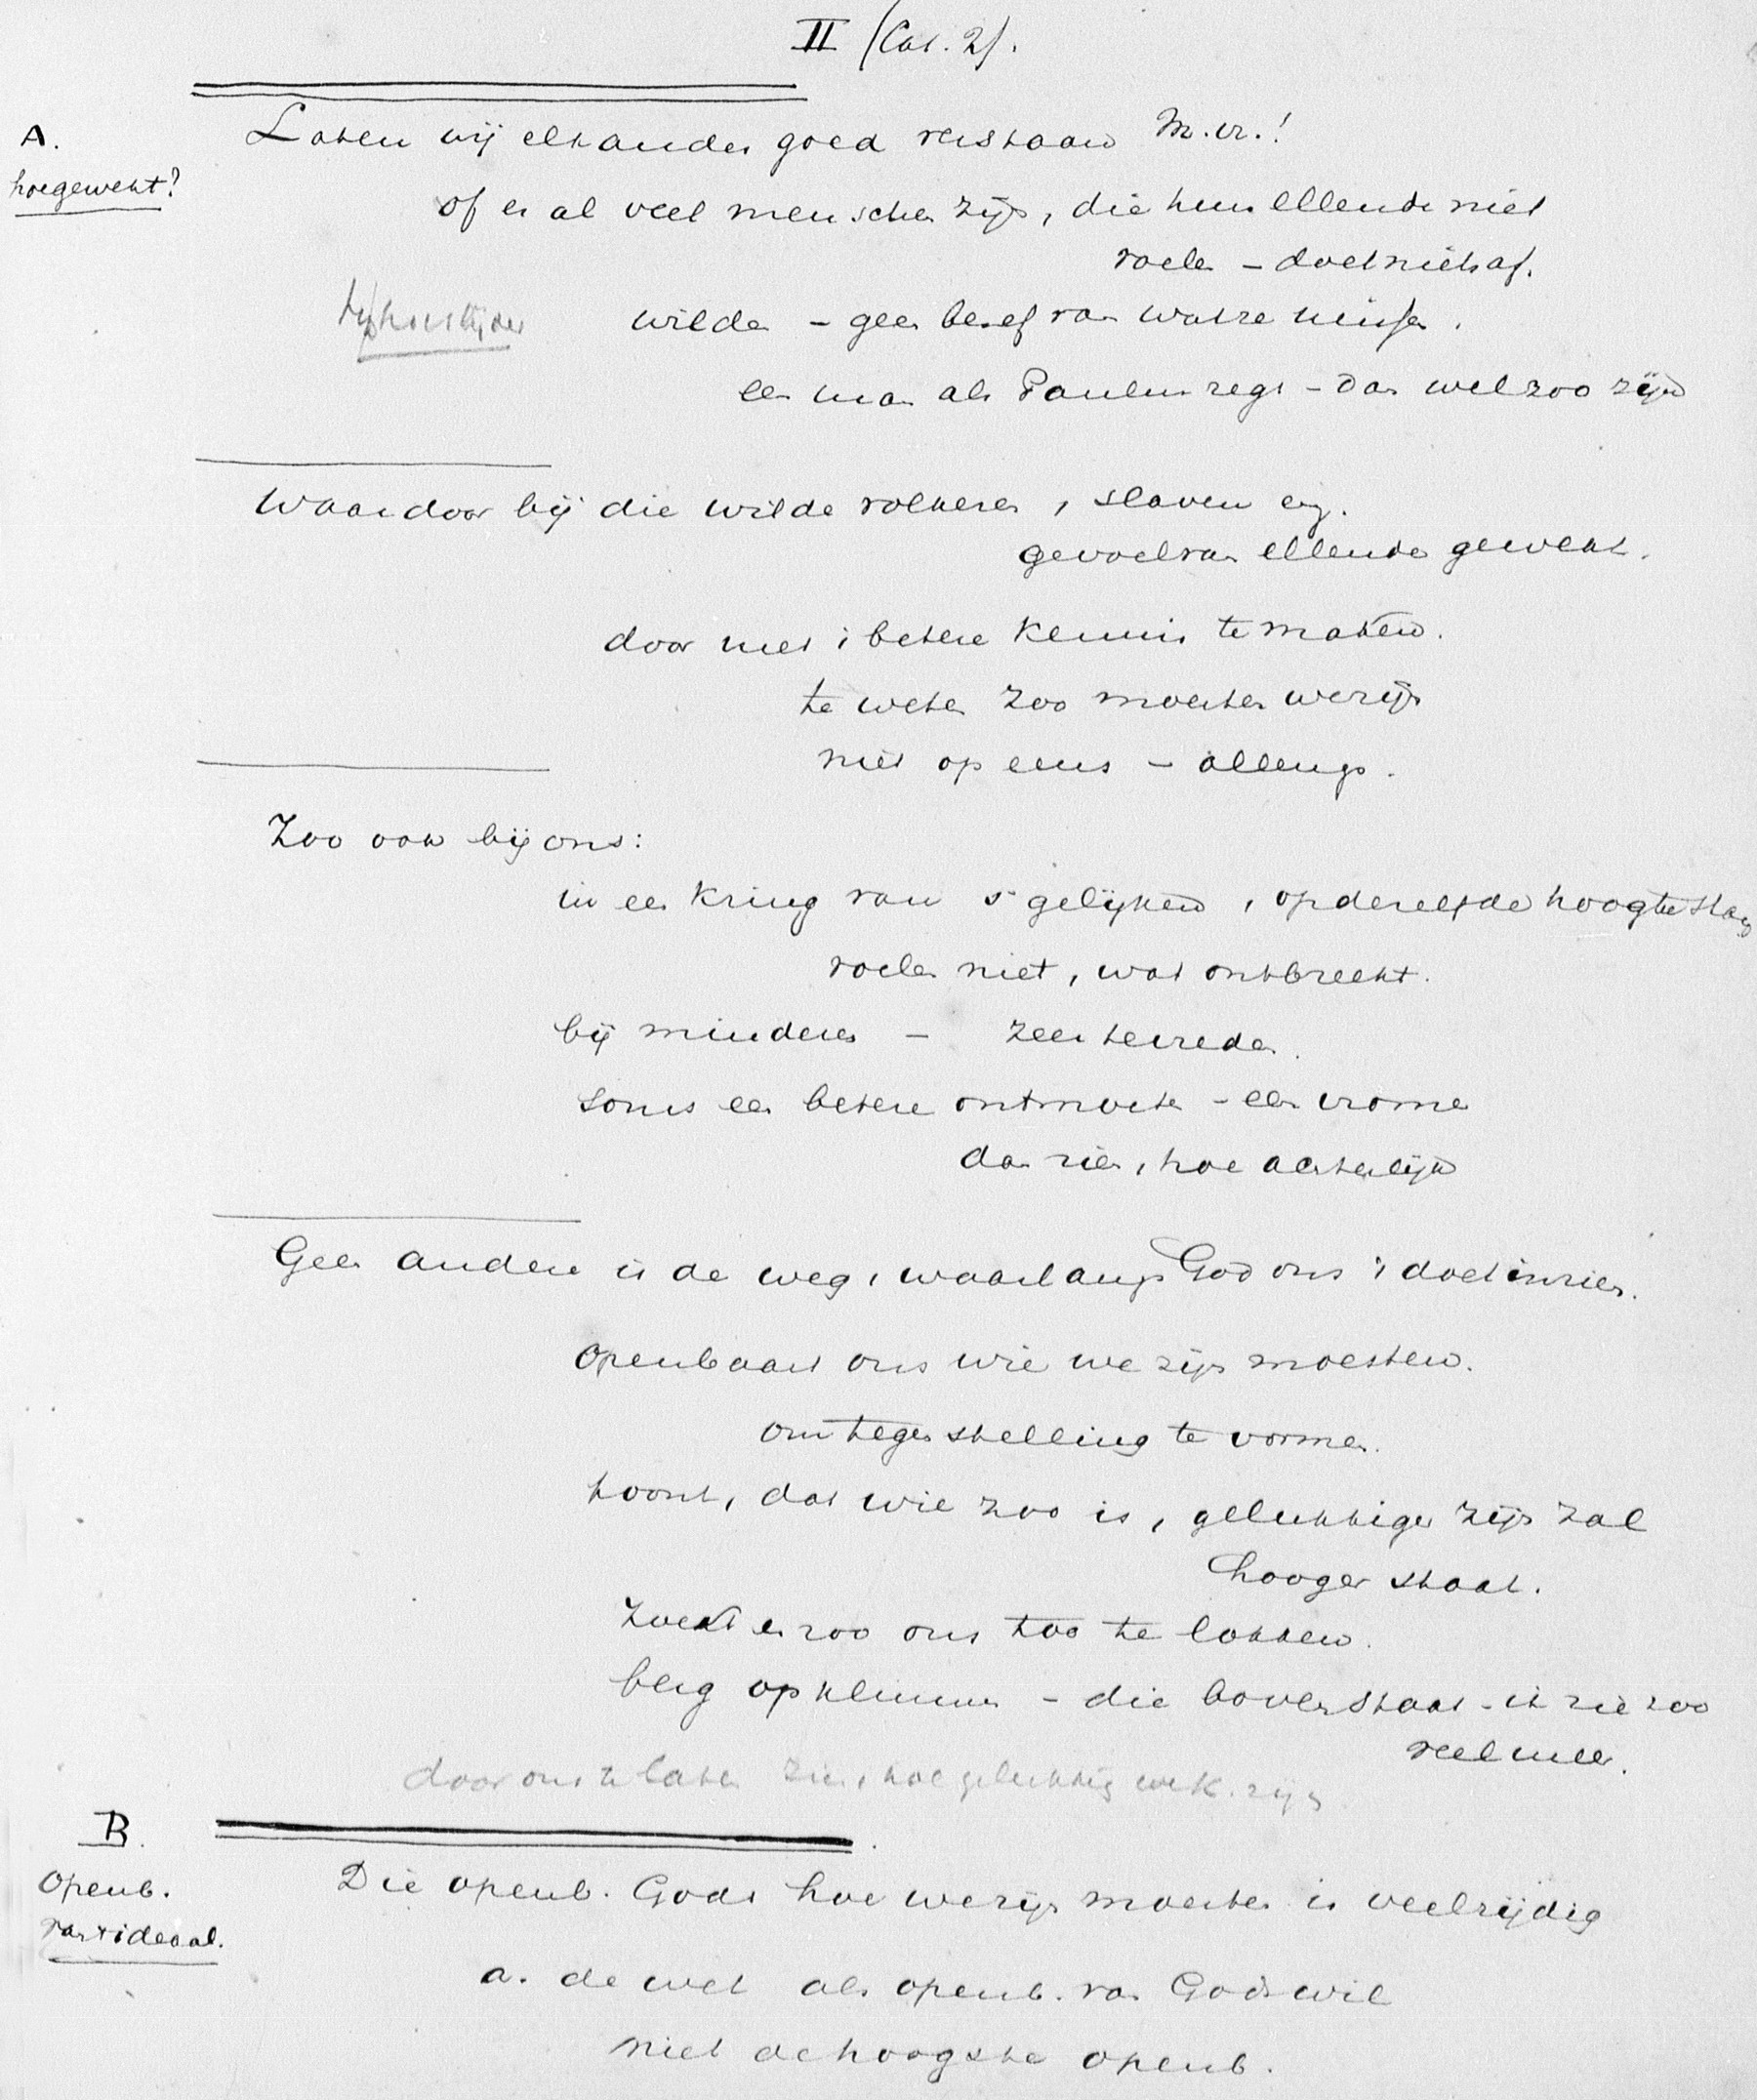 II (Cat. 2).
A.
hoegewekt?
Laten wij elkander goed verstaan M. vr.!
of er al veel menschen zijn, die hun ellende niet
voelen - doet niets af.
wilden - geen besef van ware
een man als Paulus zegt - dan wel zoo zijn
Waardoor bij die wilde volkeren, slaven enz.
gevoel van ellende gewekt.
door met 't betere kennis te maken.
te weten zoo moesten we zijn
niet op eens - allengs.
Zoo ook bij ons:
in een kring van 's gelijken, op dezelfde hoogte staan
voelen niet, wat ontbreekt.
bij minderen - zeer tevreden.
soms een betere ontmoeten - een vrome
dan zien, hoe achterlijk
Geen andere is de weg, waarlangs God ons 't doet inzien.
Openbaart ons wie we zijn moesten.
om tegenstelling te vormen.
toont, dat wie zoo is, gelukkiger zijn zal
hooger staat.
Zoekt er zoo ons toe te lokken.
berg opklimmen - die boven staat - ik zie zoo
veel meer.
door ons te laten zien, hoe gelukkig we k. zijn
B.
Openb.
van 't ideaal.
Die openb. Gods hoe we zijn moesten is veelzijdig
a. de wet als openb. van Gods wil
niet de hoogste openb.